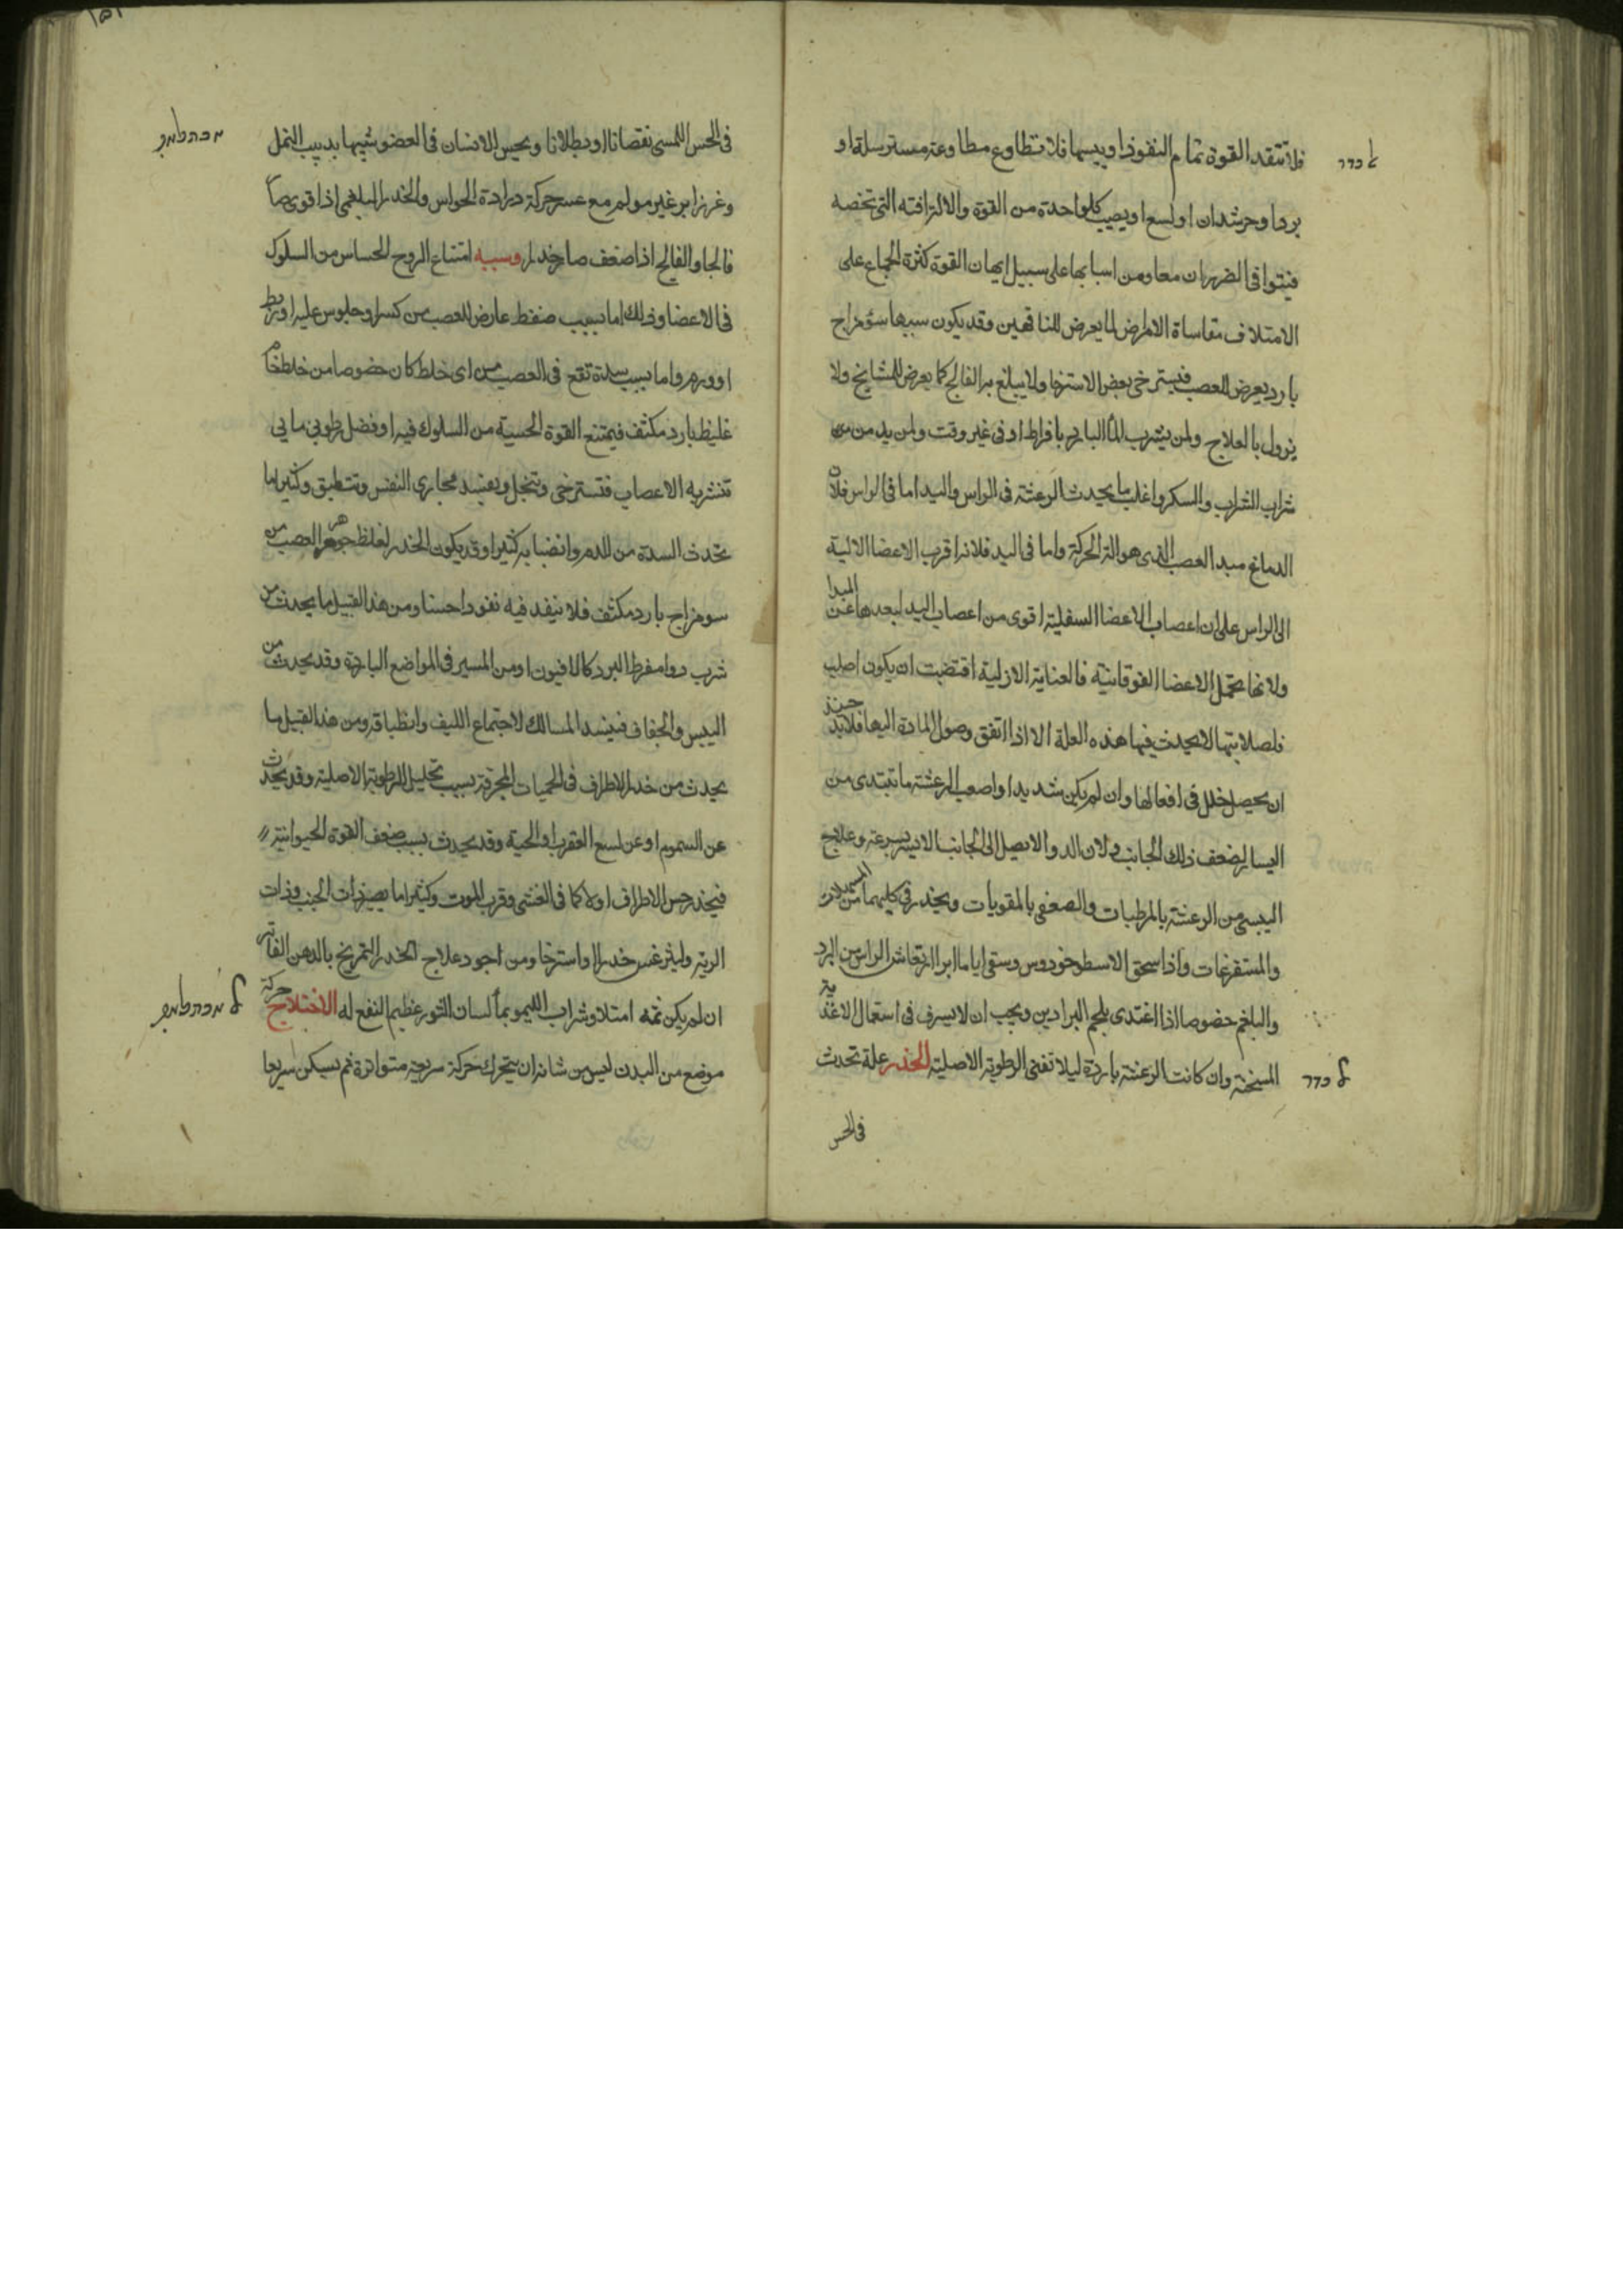 فلا تنفد القوة تمام النفوذ او يبسها فلا تطاوع مطاوعة مسترسلة او
بردا وحر شدان او لسع او يصيب كل واحدة من القوة والالة افته التى تخصه
فيتوافى الضرران معا ومن اسبابها على سبيل ايهان القوة كثرة الجماع على
الامتلا ف مقاساة الامراض لما يعرض للناقهين وقد يكون سببها سؤ مزاج
بارد يعرض للعصب فيسترخى بعض الاسترخا ولا يبلغ به الفالج كما يعرض للمشايخ ولا
يزول بالعلاج ولمن يشرب الما البارد بافراط او فى غير وقت ولمن يدمن من
شراب الشراب والسكر واغلب ما يحدث الرعشة فى الراس واليد اما فى الراس فلان
الدماغ مبدا العصب الذى هو الة الحركة واما فى اليد فلانه اقرب الاعضا الالية
الى الراس على ان اعصاب الاعضا السفلية اقوى من اعصاب اليد لبعدها عن المبدا
ولانها تحمل الاعضا الفوقانية فالعناية الازلية اقتضت ان يكون اصلب
فلصلابتها لا يحدث فيها هذه العلة الا اذا اتفق وصول المادة اليها فلابد حينئذ
ان يحصل خلل فى افعالها وان لم يكن شديدا واصعب الرعشة ما تبتدى من
اليسار لضعف ذلك الجانب ولان الدوا لا يصل الى الجانب الايسر بسرعة وعلاج
اليبسى من الرعشة بالمرطبات والضعفى بالمقويات ويحذر فى كليهما من
والمستفرغات واذا سحق الاسطوخودوس وسقى اياما ابرا ارتعاش الراس من البرد
والبلغم خصوصا اذا اغتدى بلحم البرادين ويجب ان لا يسرف فى استعمال الاغذية
المسخنة وان كانت الرعشة باردة ليلا تفنى الرطوبة الاصلية الخدر علة تحدث
فى الحس
فى الحس اللمسى نقصانا او بطلانا ويحس الانسان فى العضو شبيها بدبيب النمل
وغرز ابر غير مولم مع عسر حركة الحواس والخدر البلغمى اذا قوى صار
فالجا والفالج اذا ضعف صار خدر وسببه امتناع الروح الحساس من السلوك
فى الاعضا وذلك اما بسبب ضغط عارض للعصب من كسر او جلوس عليه او ربط
او ورم واما بسبب سدة تقع فى العصب من اى خلط كان خصوصا من خلط خام
غليظ بارد مكثف فيمتنع القوة الحسية من السلوك فيه او فضل رطوبى مايى
تنشربه الاعصاب فتسترخى وتنجل ويفسد مجارى النفس وتنطبق وكثيرا ما
تحدث السدة من الدم وانصبابه كثيرا وقد يكون الخدر لغلظ جوهر العصب من
سو مزاج بارد مكثف فلا ينفد فيه نفودا حسنا ومن هذا القبيل ما يحدث من
شرب دوا مفرط البرد كالافيون او من المسير فى المواضع الباردة وقد يحدث من
اليبس والجفاف فينسد المسالك لاجتماع الليف وانطباقه ومن هذا القبيل ما
يحدث من خدر الاطراف فى الحميات المحرقة بسبب تحليل الرطوبة الاصلية وقد يحدث
عن السموم او عن لسع العقرب او الحية وقد يحدث بسبب ضعف القوة الحيوانية
فيخدر حس الاطراف اولا كما فى الغشى وقرب الموت وكثيرا ما يصير ذات الجنب وذات
الرية وليثرغس خدرا او استرخا ومن اجود علاج الخدر التمريخ بالدهن الفاتر
ان لم يكن ثمه امتلا وشراب الليمو بما لسان الثور عظيم النفع له الاختلاج حركة
موضع من البدن ليس من شانه ان يتحرك حركة سريعة متواترة ثم يسكن سريعا